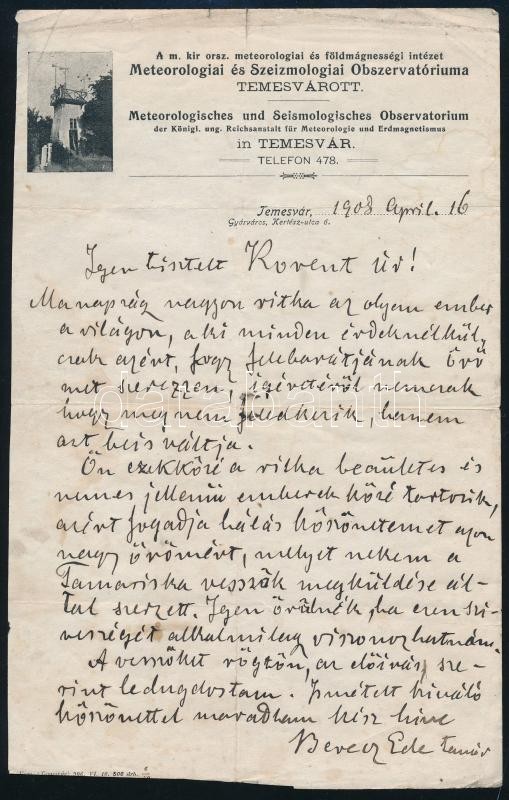 A m. kir orsz. meteorologiai és földmágnességi intézet
Meteorologiai és Szeizmologiai Obszervatóriuma
TEMESVÁROTT.
Meteorologisches und Seismologisches Observatorium
der Königl. ung. Reichsanstalt für Meteorologie und Erdmagnetismus
in TEMESVÁR.
TELEFON 478.
Temesvár, 1908 April. 16
Gyárváros, Kertész-utca 6.
Igen tisztelt Kovent Úr!
Manapság nagyon ritka az olyan ember
a világon, a ki minden érdeknélkül,
csak azért, hogy felebarátjának örö
met szerezzen, igéretéről nemcsak
hogy meg nem feledkezik, hanem
azt be is váltja.
Ön ezekköré a ritka becsületes és
nemes jellemű emberek közé tartozik,
azért fogadja hálás köszönetemet azon
nagy örömért, melyet nekem a
Tamariska vesszők megküldése ál-
tal szerzett. Igen örülnék, ha ezen szi-
vességét alkalmilag viszonozhatnám.
A vesszőket rögtön, az előirás sze-
rint ledugdostam. Ismételt kiváló
köszönettel maradtam kész hive
Berecz Ede tanár
darabanth